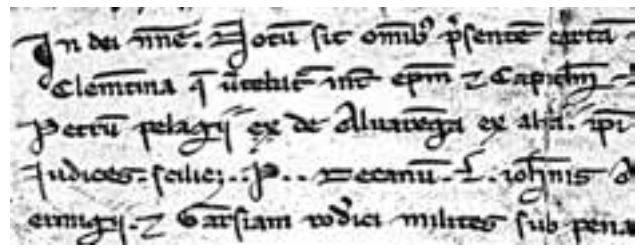 In dei nn̄e. Notū sit om̄ib9 p̄sentē cartā
Clem̄tina q̄ ūtebat̄ int̄ ep̄m ⁊ Capitl̄m
Petrū pelagij ex de Aluarēga ex alt̄a. ip̄i
Judices. scilic;. P. . Decanū. L. ioh̄nis
ermigij. ⁊ Garsiam rod̓ici milites sub pena